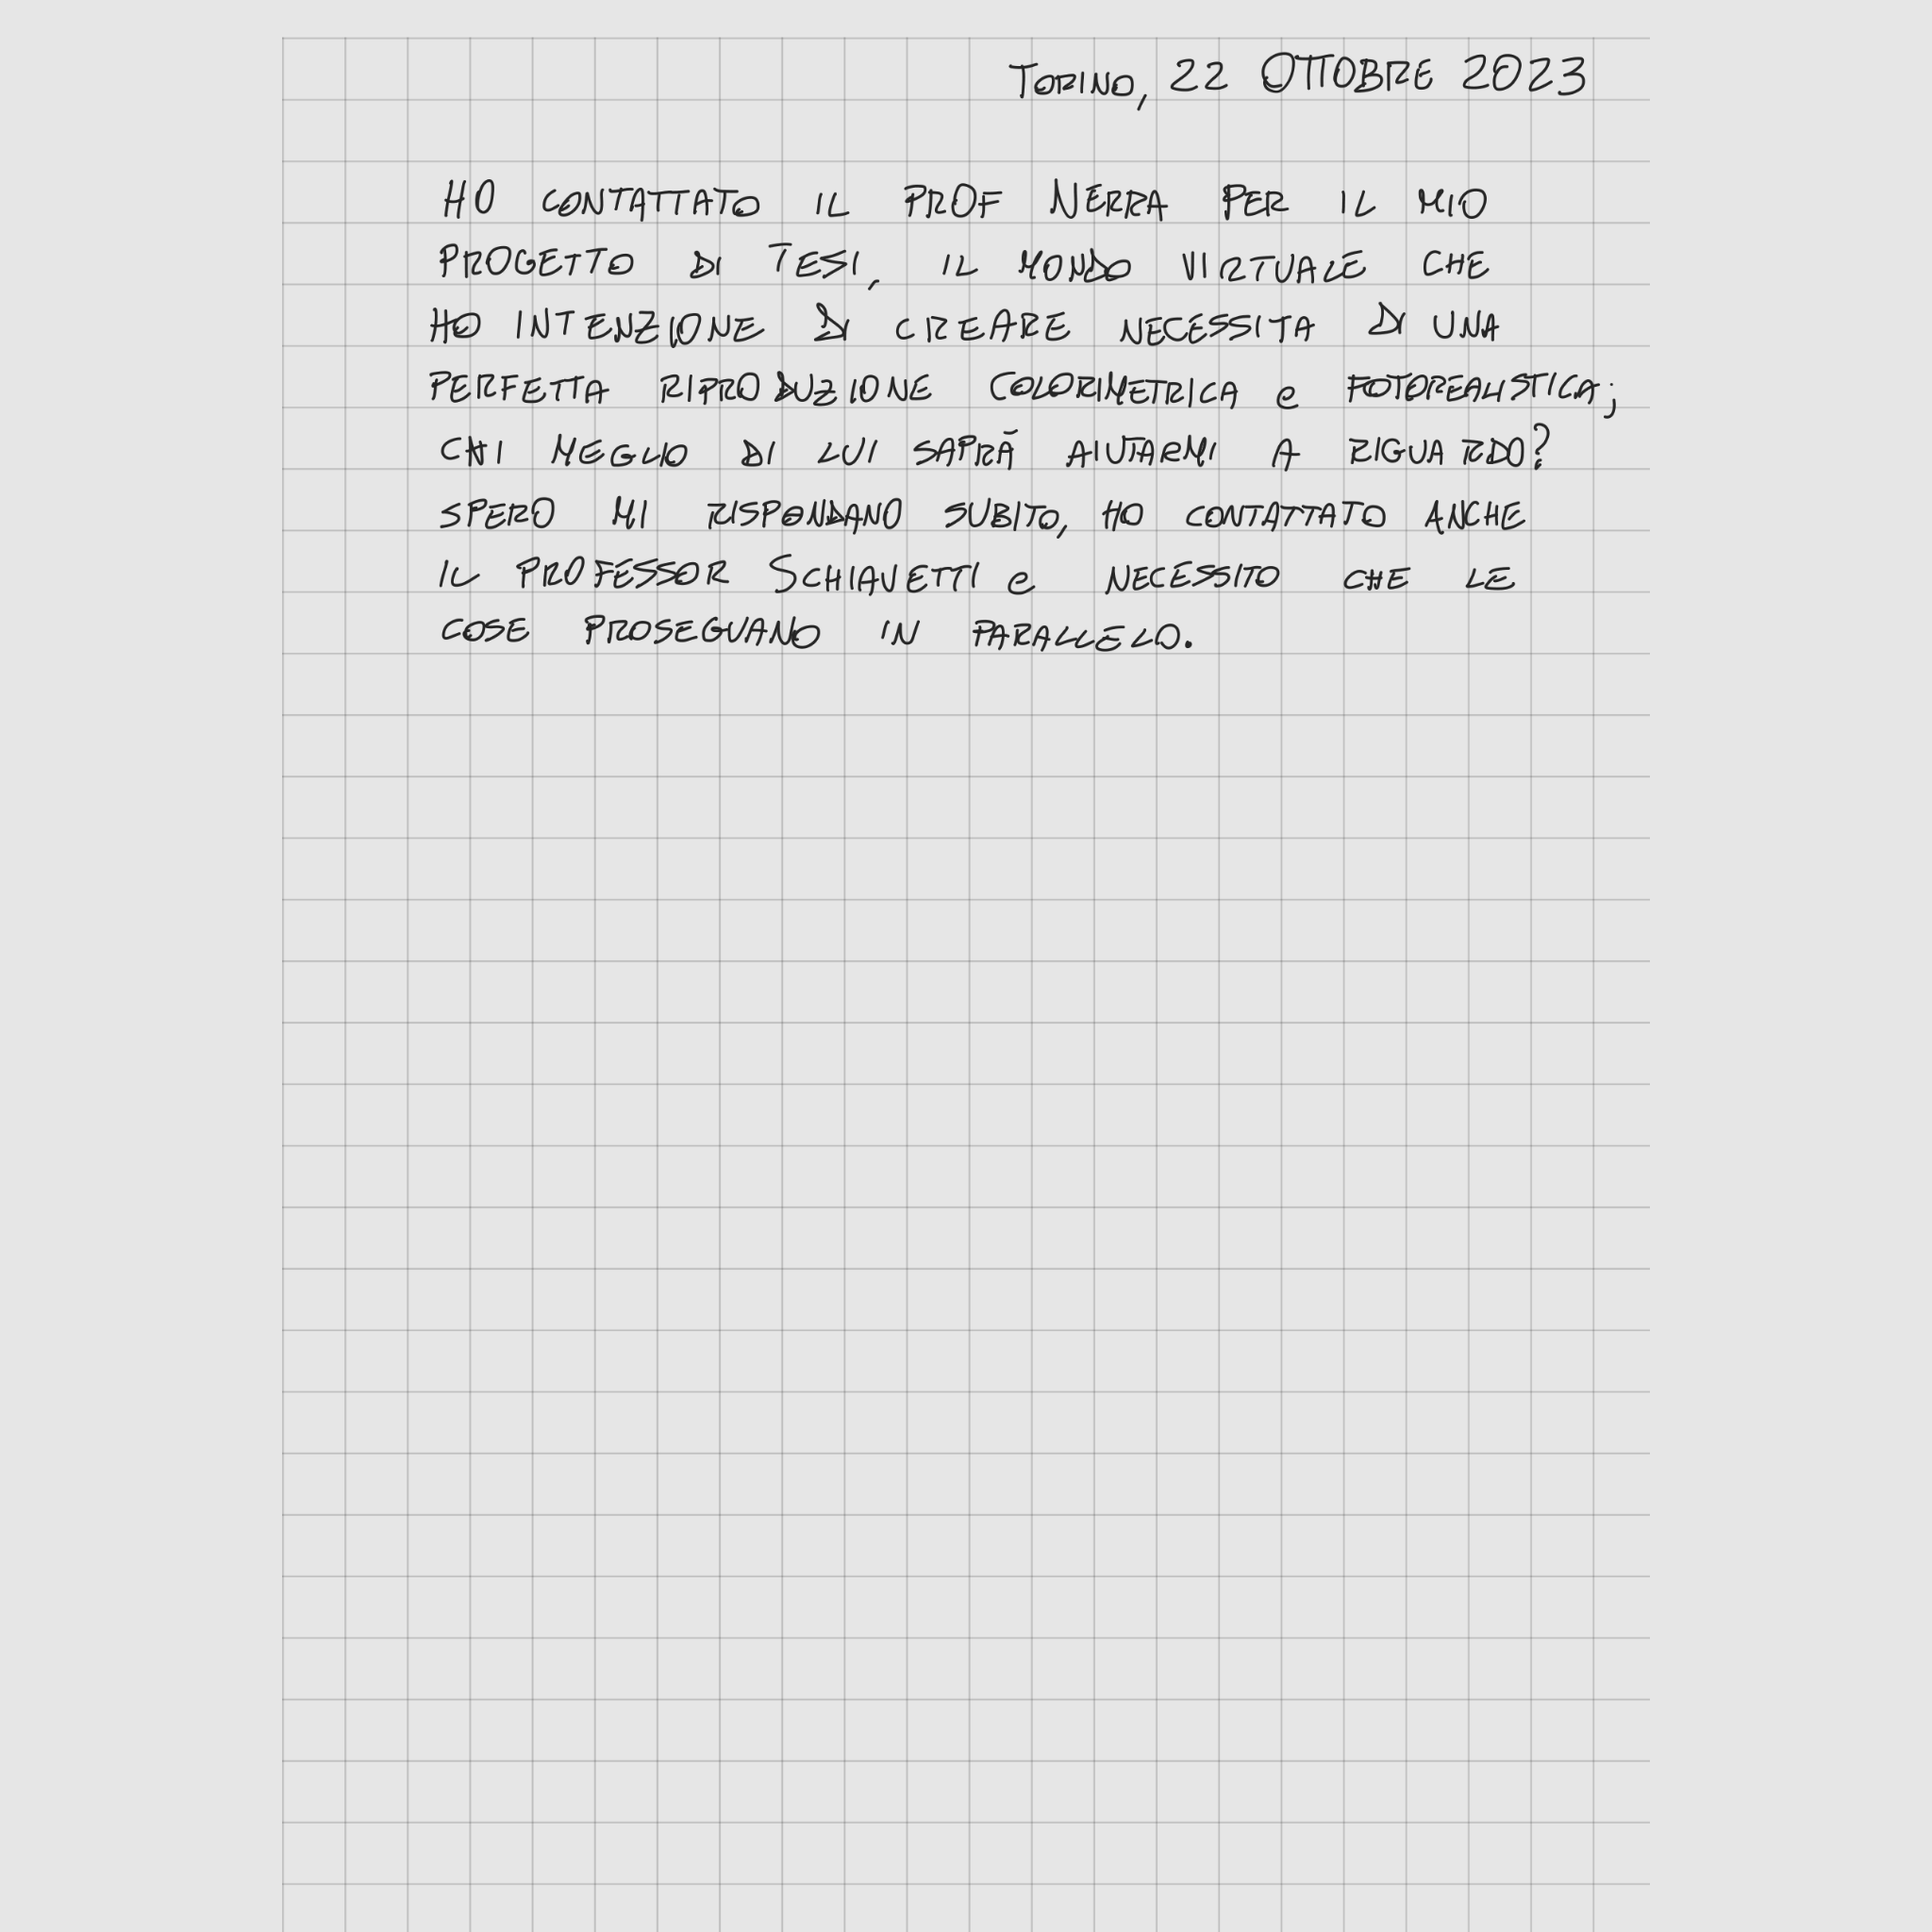 Torino, 22 OTTOBRE 2023
HO CONTATTATO IL PROF NERRA PER IL MIO
PROGETTO DI TESI, IL MONDO VIRTUALE CHE
HO INTENZIONE DI CREARE NECESSITA DI UNA
PERFETTA RIPRODUZIONE COLORIMETRICA e FOTOREALISTICA;
CHI MEGLIO DI LUI SAPRÀ AIUTAeMI A RIGUARDO?
SPERO MI RISPONDANO SUBITO, HO CONTATTATO ANCHE
IL PROFESSOR SCHIAVETTI e NECESSITO CHE LE
COSE PROSEGUANO IN PARALLELO.